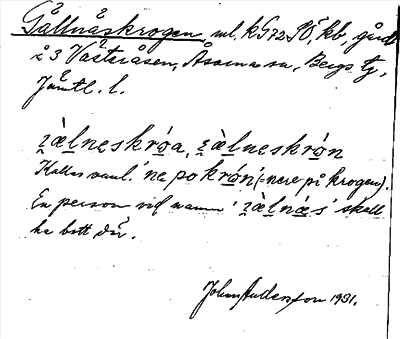 Gållnåskrogen, ml. kG72SO kb, gård
å 3 Västeråsen, Åsarna sn, Bergs tg,
Jämtl. l.
ʒæ̀lneskrọ́a, ʒæ̀lneskrọ́n
Kallas vanl. 'ne po krọ́n' (= nere på krogen).
En person vid namn 'ʒæ̀lnás' skall
ha bott där.
John Anderzon 1931.